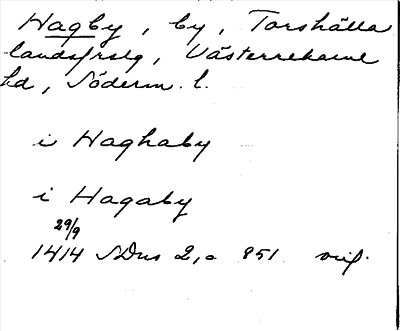 Hagby, by, Torshälla
landsfrslg, Västerrekarne
hd, Söderm. l.
i Haghaby
i Hagaby
29/9
1414 SDns 2, a 851 orig.